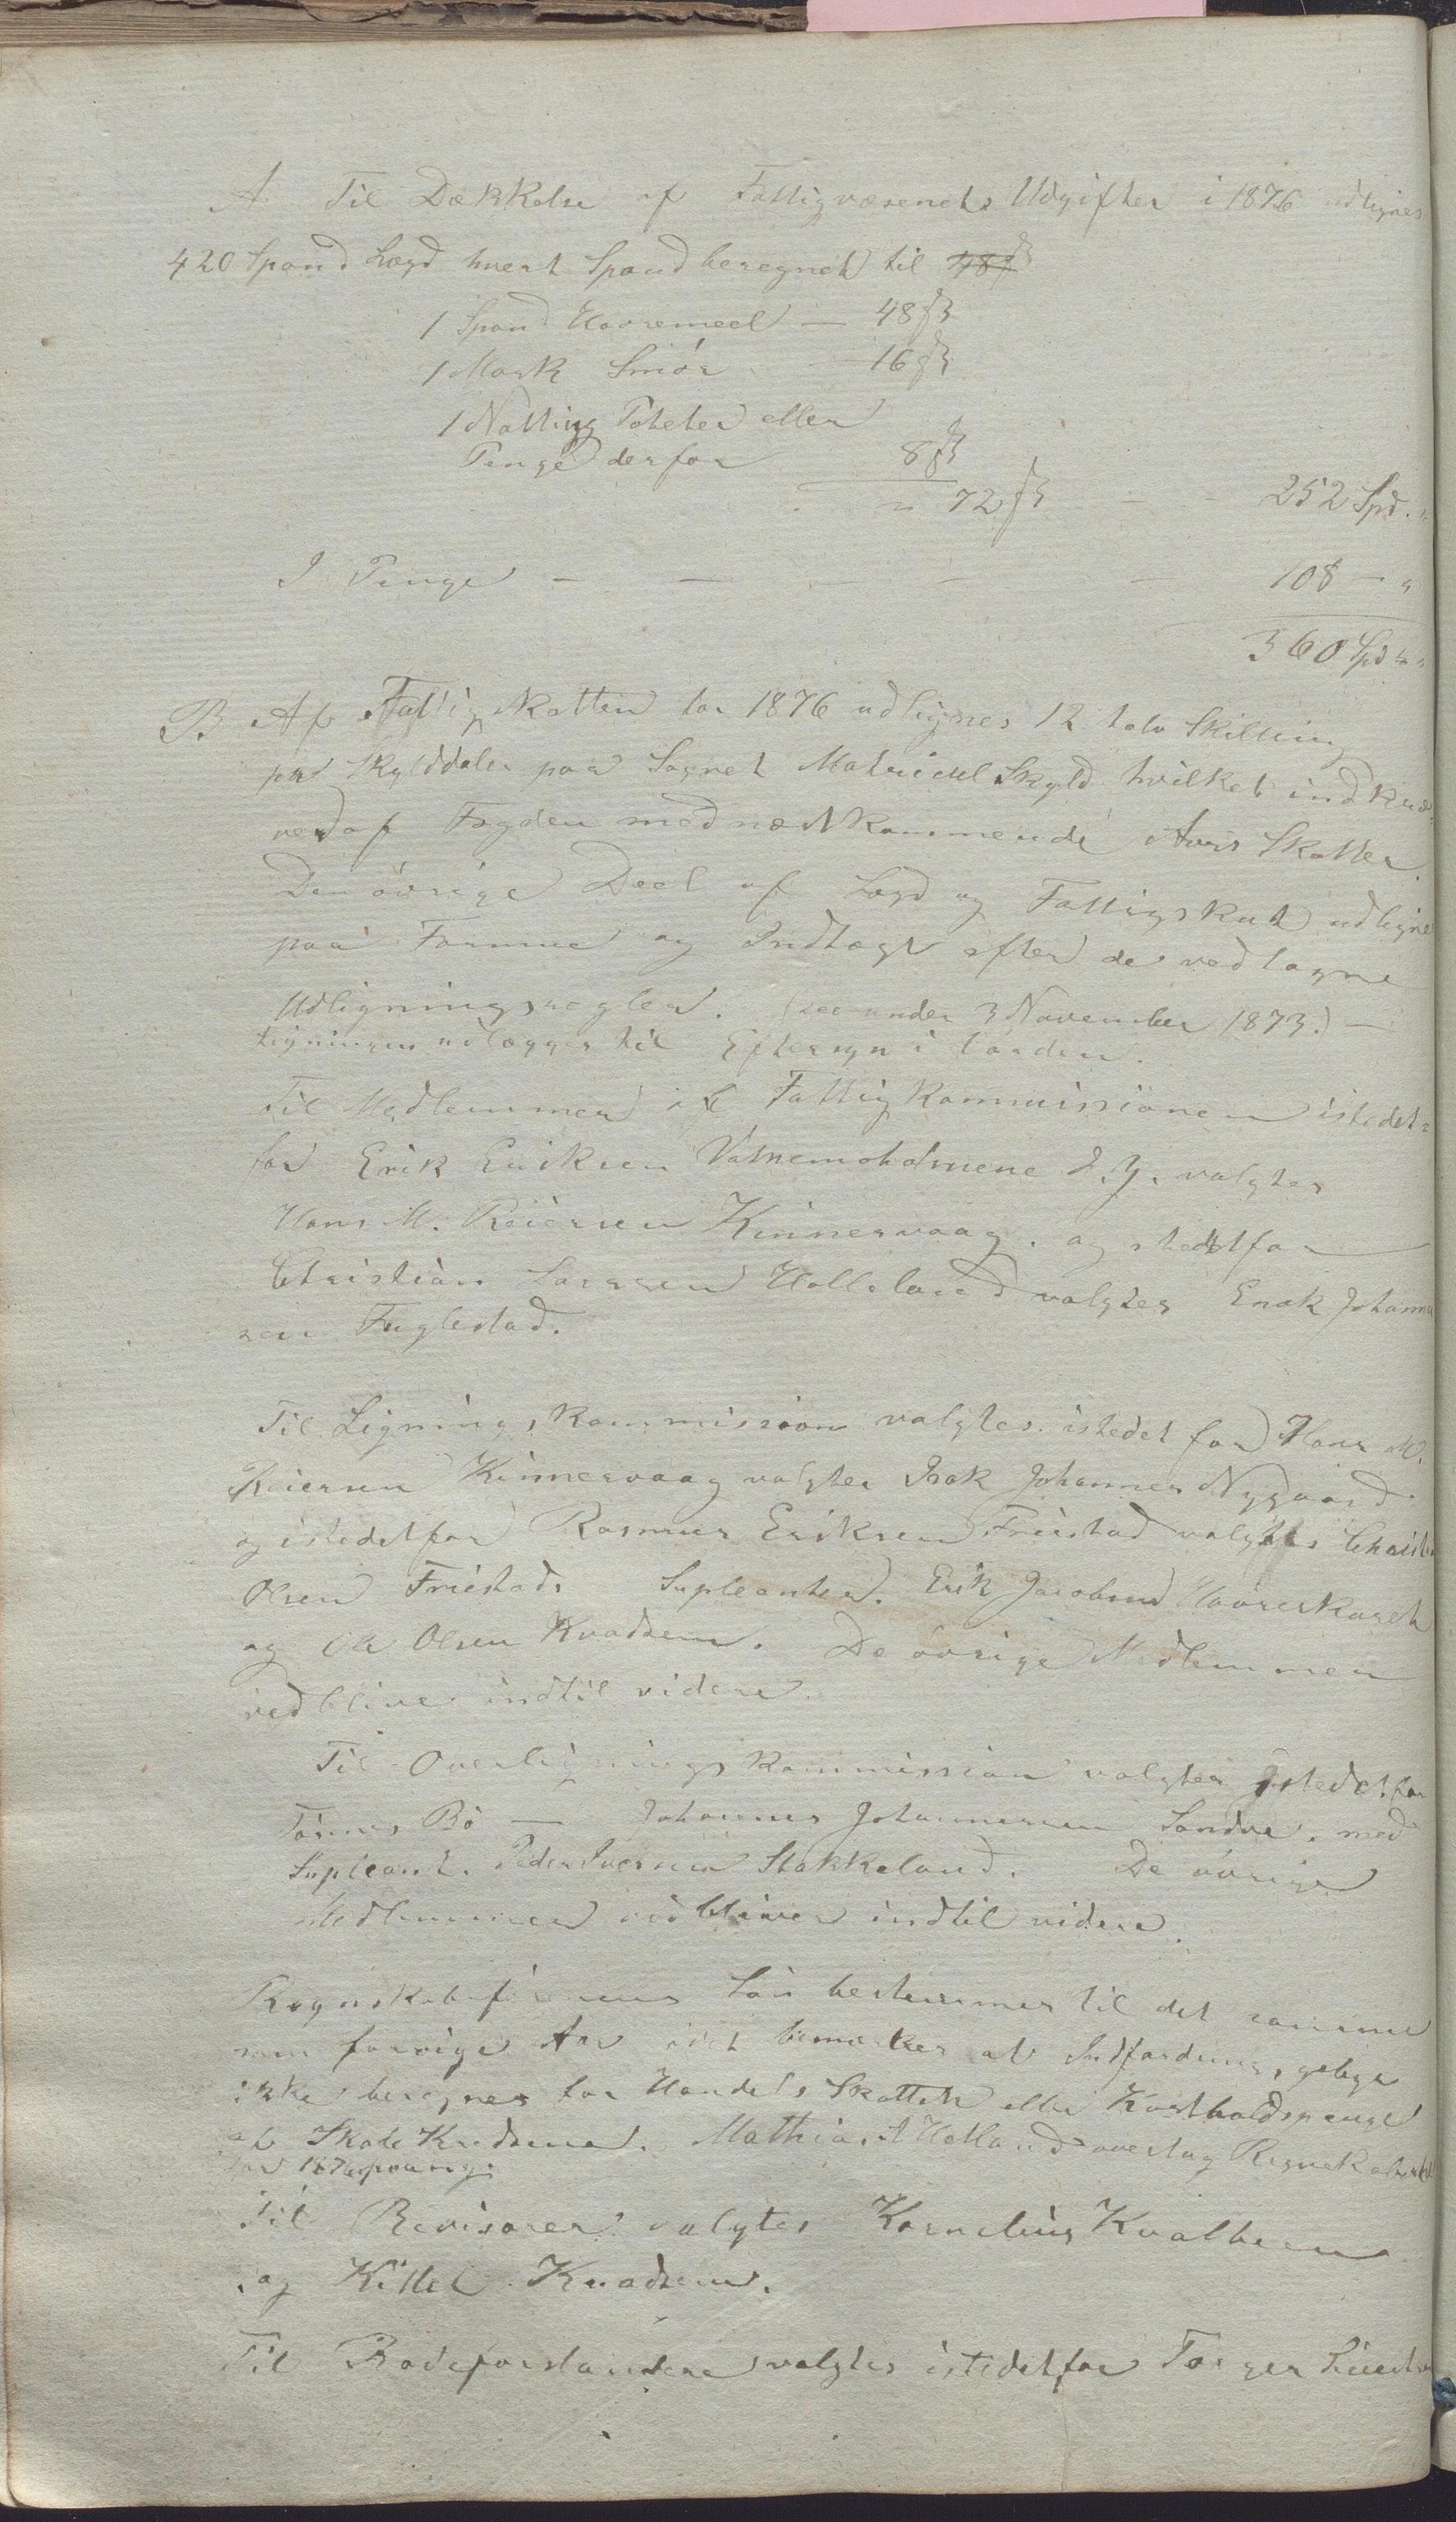 A. Til Dækkelse af Fattigvæsenets Udgifter i 1876 udlignes
420 Spand Lægd hvert Spand beregnet til 48 ß
1 Spand Havremeel — 48 ß
1 Mark Smør — 16 ß
1 Notting Poteter eller
Penge derfor 8 ß
" 72 ß - - 252 Spd. "
I Penge — — — — — 108 — "
360 Spd "
B Af Fattigskatten for 1876 udlignes 12 tolv Skilling
pr Skylddaler paa Sognet Matricul Skyld hvilket indkræ-
ves af Fogden med næstkommende Aars Skatter.
Den øvrige Deel af Lægd og Fattigskat udligne
paa Formue og Indtægt efter de vedtagne
Udligningsregler. (see under 3 November 1873.) —
Ligningen udlægges til Eftersyn i
Til Medlemmer i Fattigkommissionen istedet-
for Erik Eriksen Vatnemoholmene d. y. valgtes
Hans M. Reiersen Kinnervaag. og stedetfor
Christian Larssen Holleland valgtes Enok Johanne
sen Fuglestad.
Til Lignings kommission valgtes istedet for Hans M.
Reiersen Kinnervaag valgtes Isak Johannes Nygaard
og istedetfor Rasmus Eriksen Friestad valgtes Christ
Olsen Friestad. Supleanter. Erik Jacobsen
og Ole Olsen Kvadsem. De øvrige Medlemmer
vedblive indtil videre.
Til Overligningskommission valgtes Istedetfor
Tønnes Bø — Johannes Johannessen Sandve. med
Supleant. Peder Iversen Stokkeland. De øvrige
Medlemmer vedbliver indtil videre.
Regnskabsførerens Løn bestemmes til det samme
som forrige Aar idet bemærkes at Indfordringsgebyr
ikke beregnes for Handels Skatten eller Kostholdspenge
af Skole Kredsene. Mathias A Hetland overtag
for 1876
Til Revisorer valgtes Kornelius Kvalbein
og Kittel Kvadsem.
Til Rodeforstandere valgtes istedetfor Torger